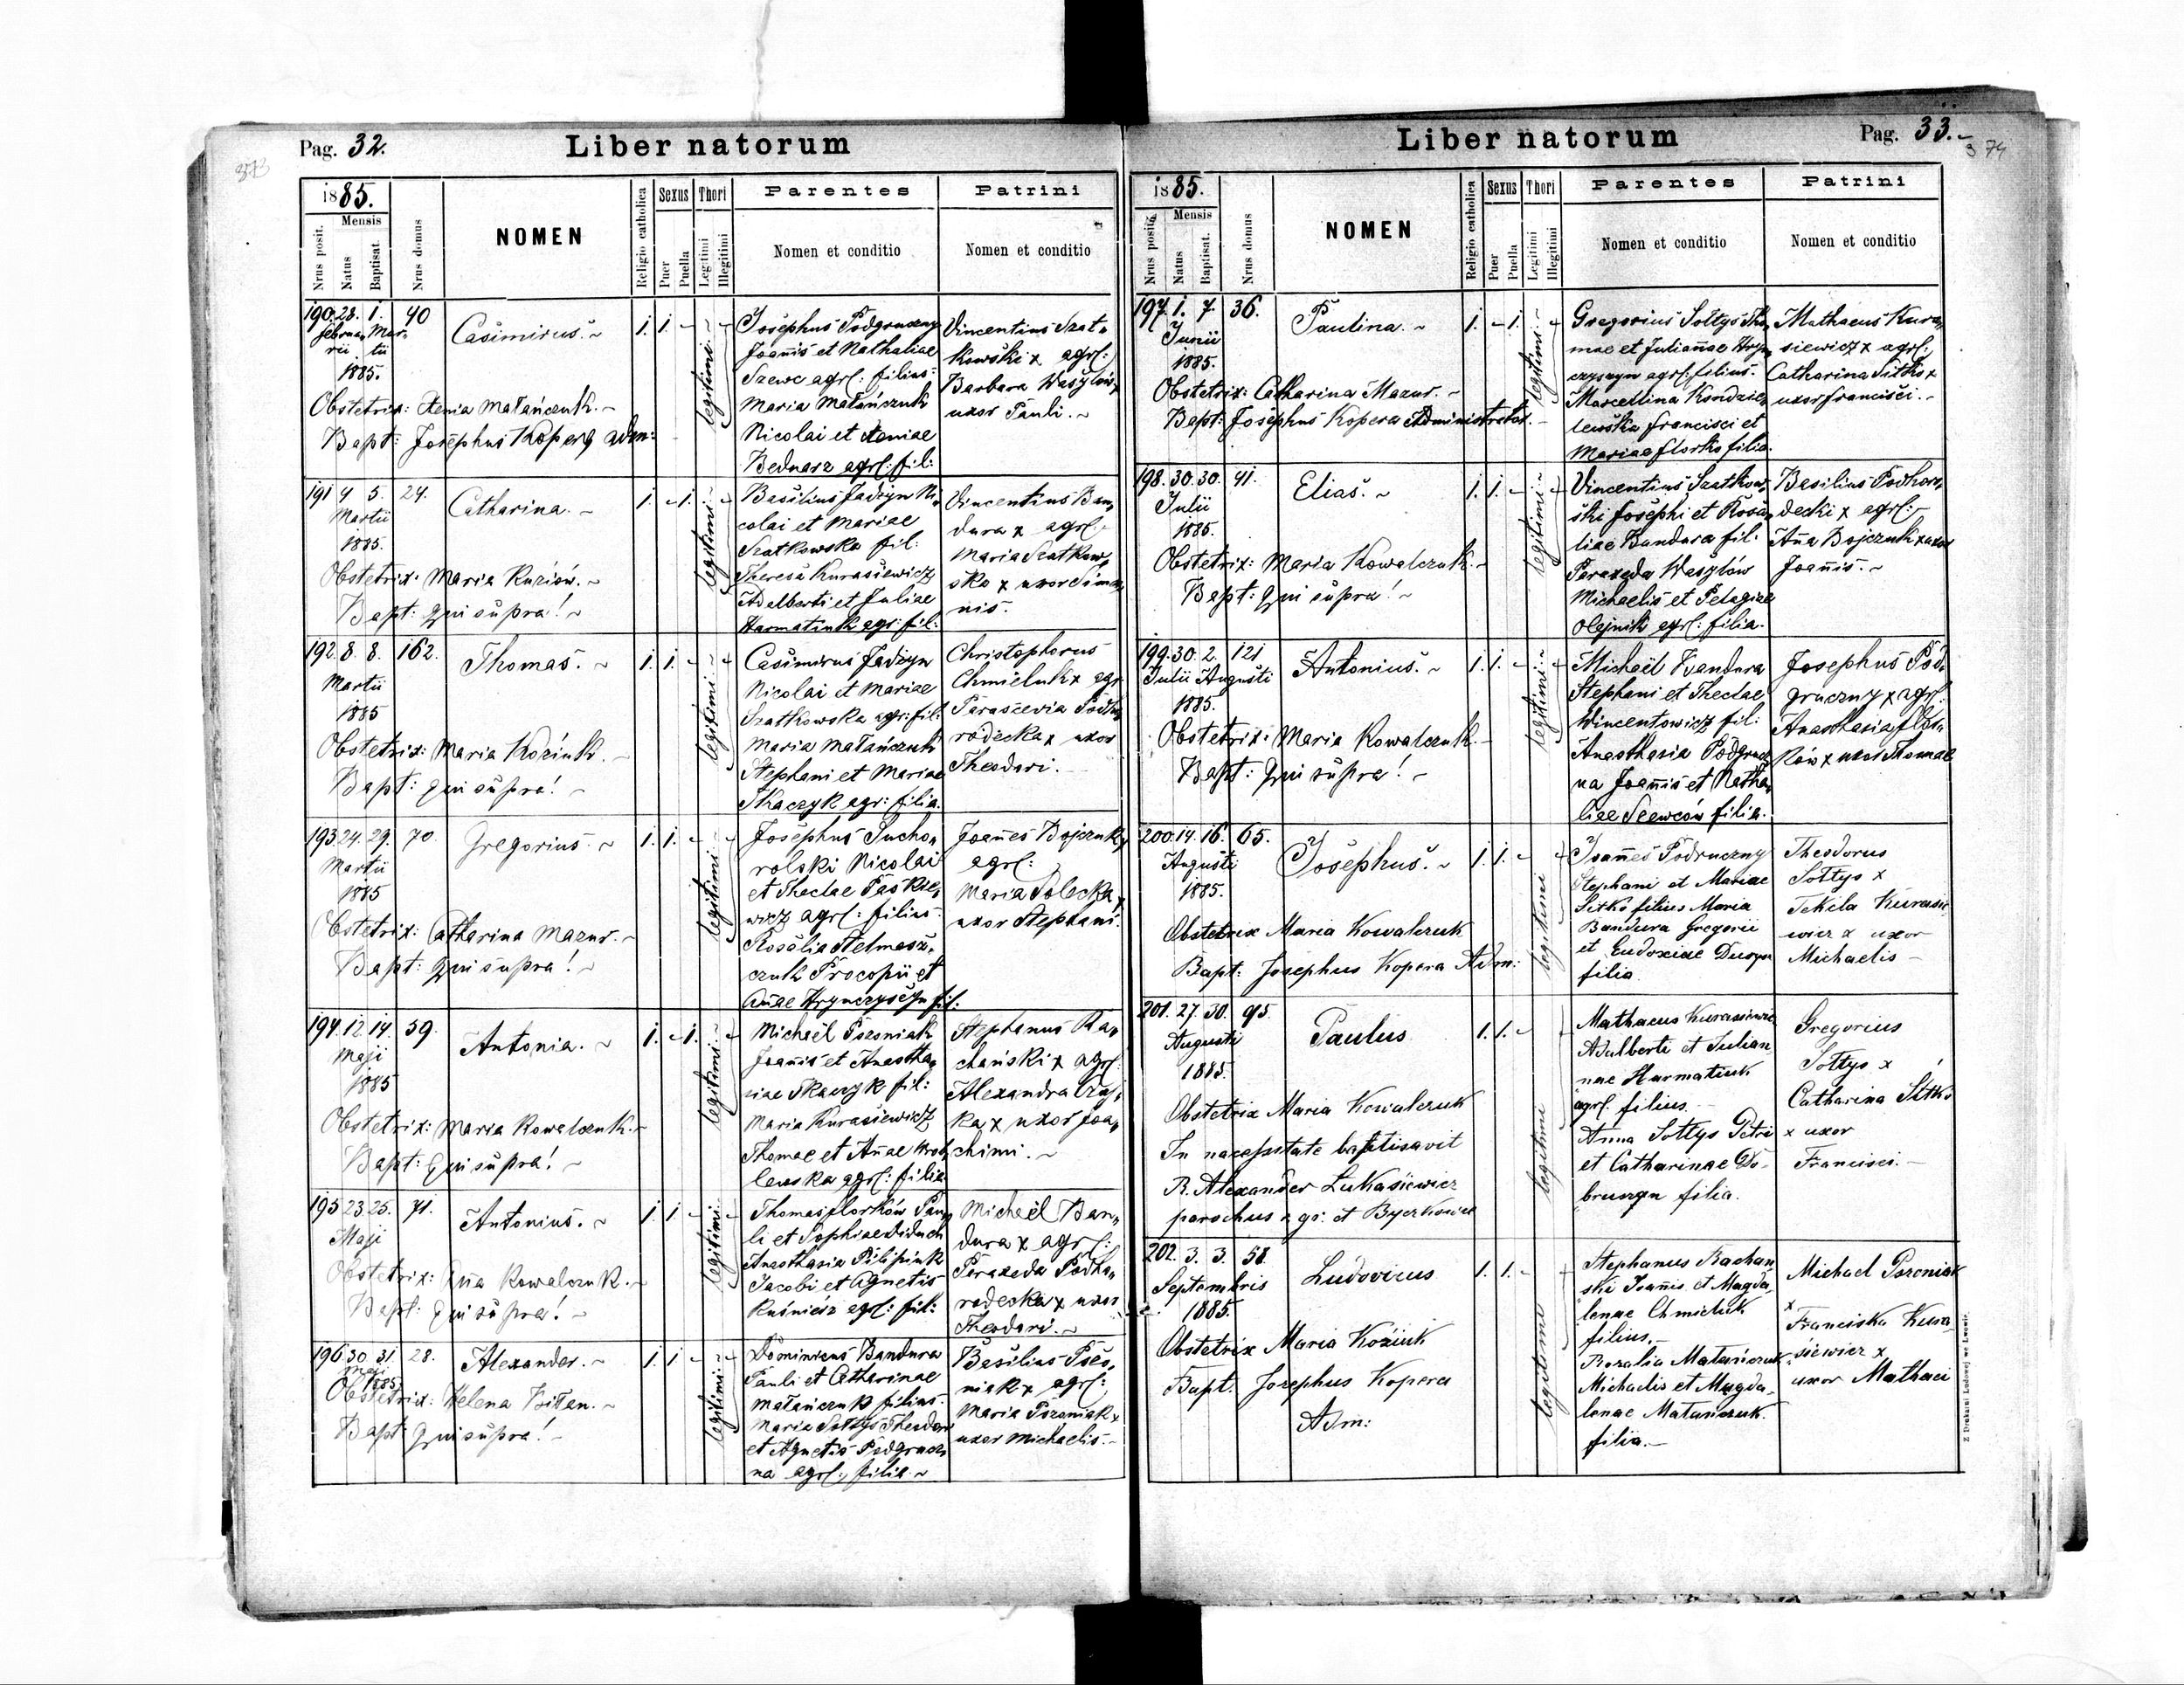 Pag. 32.
Liber natorum
373
1885.
Nrus posit.
Mensis
Natus
Baptisat.
Nrus domus
NOMEN
Religio catholica
Sexus
Puer
Puella
Thori
Legitimi
Illegitimi
Parentes
Nomen et conditio
Patrini
Nomen et conditio
190. 28. 1. 40
Februa- Mar-
rii tii
1885.
Casimirus. ~
1. 1. -
legitimi
Obstetrix: Xenia Matańczuk. -
Bapt: Josephus Kopera adm:
Josephus Podgruczny
Joannis et Nathaliae
Szewc agrl: filius:
Maria Matańczuk
Nicolai et Xeniae
Bednarz agrl: fil:
Vincentius Szat-
kowski x agrl:
Barbara Wasylów x
uxor Pauli. ~
191 4 5. 24.
Martii
1885.
Catharina. ~
1. - 1.
legitimi
Obstetrix: Maria Kuziów. ~
Bapt: qui supra! ~
Basilius Jadzyn Ni-
colai et Mariae
Szatkowska fil:
Theresa Kurasiewicz
Adalberti et Juliae
Harmatiuk agr: fil:
Vincentius Ban-
dura x agrl:
Maria Szatkow-
ska x uxor Simeo-
nis.
192. 8. 8. 162.
Martii
1885
Thomas. ~
1. 1. -
legitimi
Obstetrix: Maria Koziuk. -
Bapt: qui supra! ~
Casimirus Jadzyn
Nicolai et Mariae
Szatkowska agr: fil:
Maria Matańczuk
Stephani et Mariae
Tkaczyk agr: filia.
Christophorus
Chmieluk x agr
Parascevia Podho-
rodecka x uxor
Theodori. -
193. 24. 29. 70.
Martii
1885
Gregorius. ~
1. 1. -
legitimi
Obstetrix: Catharina Mazur. ~
Bapt: qui supra! ~
Josephus Sucho-
rolski Nicolai
et Theclae Paskie-
wicz agrl: filius:
Rosalia Stelmasz-
czuk Procopii et
Annae Hrynczyszyn fil:
Joannes Bojczuk x
agrl:
Maria Solecka x
uxor Stephani.
194. 12. 14. 59.
Maji
1885
Antonia. ~
1. - 1.
legitimi
Obstetrix: Maria Kowalczuk. ~
Bapt: qui supra! ~
Michaël Pszoniak
Joannis et Anastha-
siae Tkaczyk fil:
Maria Kurasiewicz
Thomae et Annae Wrob-
lewska agrl: filia
Stephanus Ra-
chański x agrl:
Alexandra Czaj-
ka x uxor Joa-
chimi. ~
195 23. 25. 71.
Maji
Antonius. ~
1. 1. -
legitimi
Obstetrix: Anna Kowalczuk. ~
Bapt: qui supra! ~
Thomas Florków Pau-
li et Sophiae Diduch
Anasthasia Pilipiuk
Jacobi et Agnetis
Kuśnierz agrl: fil:
Michaël Ban-
dura x agrl:
Paraxeda Podho-
rodecka x uxor
Theodori. ~
196 30. 31. 28.
Maji
1885
Alexander. ~
1. 1 -
legitimi
Obstetrix: Helena Bitan. ~
Bapt: qui supra! ~
Dominicus Bandura
Pauli et Catharinae
Matańczuk filius.
Maria Sołtys Theodori
et Agnetis Podgrucz-
na agrl: filia ~
Basilius Pszo-
niak x agrl:
Maria Pszoniak x
uxor Michaelis. -
Liber natorum
Pag. 33. -
374
1885.
Nrus posit.
Mensis
Natus
Baptisat.
Nrus domus
NOMEN
Religio catholica
Sexus
Puer
Puella
Thori
Legitimi
Illegitimi
Parentes
Nomen et conditio
Patrini
Nomen et conditio
197. 1. 7. 36.
Junii
1885.
Paulina. ~
1. - 1.
legitimi
Obstetrix: Catharina Mazur. ~
Bapt: Josephus Kopera Administrator. -
Gregorius Sołtys Tho-
mae et Juliannae Hryn-
czyszyn agrl: filius.
Marcellina Kondzie-
lewska Francisci et
Mariae Florko filia.
Mathaeus Kura-
siewicz x agrl:
Catharina Sitko x
uxor Francisci. -
198. 30. 30. 41.
Julii
1885.
Elias. ~
1. 1. -
legitimi
Obstetrix: Maria Kowalczuk. ~
Bapt: qui supra! ~
Vincentius Szatkow-
ski Josephi et Rosa-
liae Bandura fil:
Paraxeda Wasylów
Michaelis et Pelagiae
Olejnik agrl: filia.
Basilius Podhoro-
decki x agrl:
Anna Bojczuk x uxor
Joannis. ~
199. 30. 2. 121
Julii Augusti
1885.
Antonius. ~
1. 1. -
legitimi
Obstetrix: Maria Kowalczuk. -
Bapt: qui supra! ~
Michaël Bandura
Stephani et Theclae
Wincentowicz fil:
Anasthasia Podgrucz-
na Joannis et Natha-
liae Szewców filia.
Josephus Pod-
gruczny x agrl:
Anasthasia Flor-
ków x uxor Thomae
200. 14. 16. 65.
Augusti
1885.
Josephus. ~
1. 1. -
legitimi
Obstetrix Maria Kowalczuk
Bapt: Josephus Kopera Adm:
Joannes Podruczny
Stephani et Mariae
Sitko filius Maria
Bandura Gregorii
et Eudoxiae
filia
Theodorus
Sołtys x
Tekela Kurasie-
wicz x uxor
Michaelis -
201. 27. 30. 95.
Augusti
1885.
Paulus
1. 1. -
legitimi
Obstetrix Maria Kowalczuk
In necessitate baptisavit
R. Alexander Łukasiewicz
parochus r. gr: et Byczkowce
Mathaeus Kurasiewicz
Adalberti et Julian-
nae Harmatiuk
agrl. filius. -
Anna Sołtys Petri
et Catharinae Do-
brunzyn filia.
Gregorius
Sołtys x
Catharina Sitko
x uxor
Francisci. -
202. 3. 3. 58.
Septembris
1885.
Ludovicus
1. 1. -
legitimi
Obstetrix Maria Koziuk
Bapt. Josephus Kopera
Adm:
Stephanus Rachań-
ski Joannis et Magda-
lenae Chmieluk
filius. -
Rozalia Matańczuk
Michaelis et Magda-
lenae Matańczuk.
filia. -
Michael Pszoniak
x
Franciska Kura-
siewicz x
uxor Mathaei
Z Drukarni Ludowej we Lwowie.